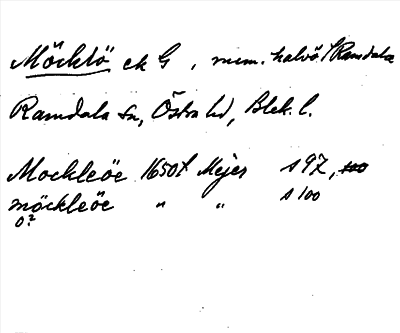 Möcklö ek G, mem. halvö i Ramdala
Ramdala sn, Östra hd, Blek. l.
Mockleöe 1650t Mejer s 97,
möckleöe " " s 100
o?